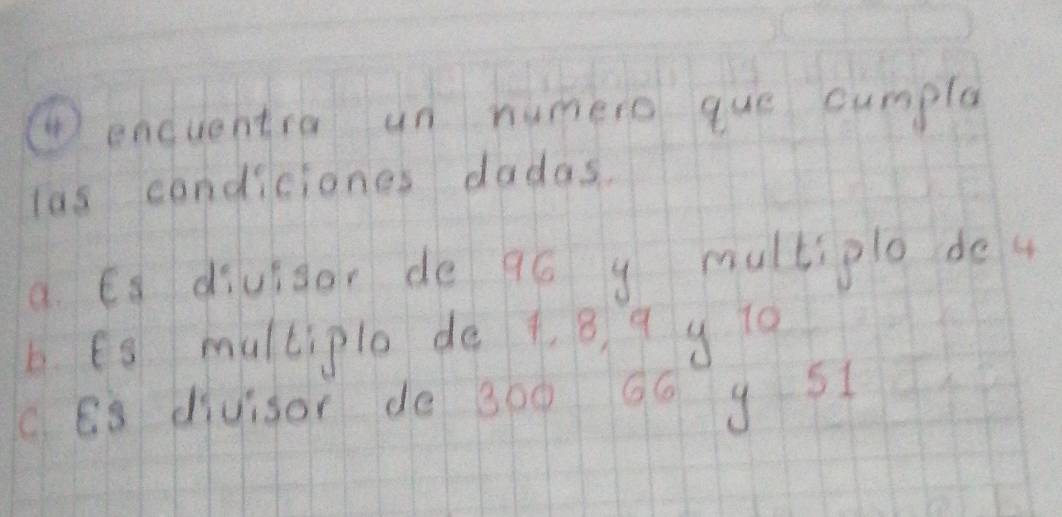 4 encuentra un numero que cumpla
las condiciones dadas.
a. Es divisor de 96 y multiplo de 4
b. Es multiplo de 1, 8, 9 y 10
c. Es divisor de 300 66 y 51